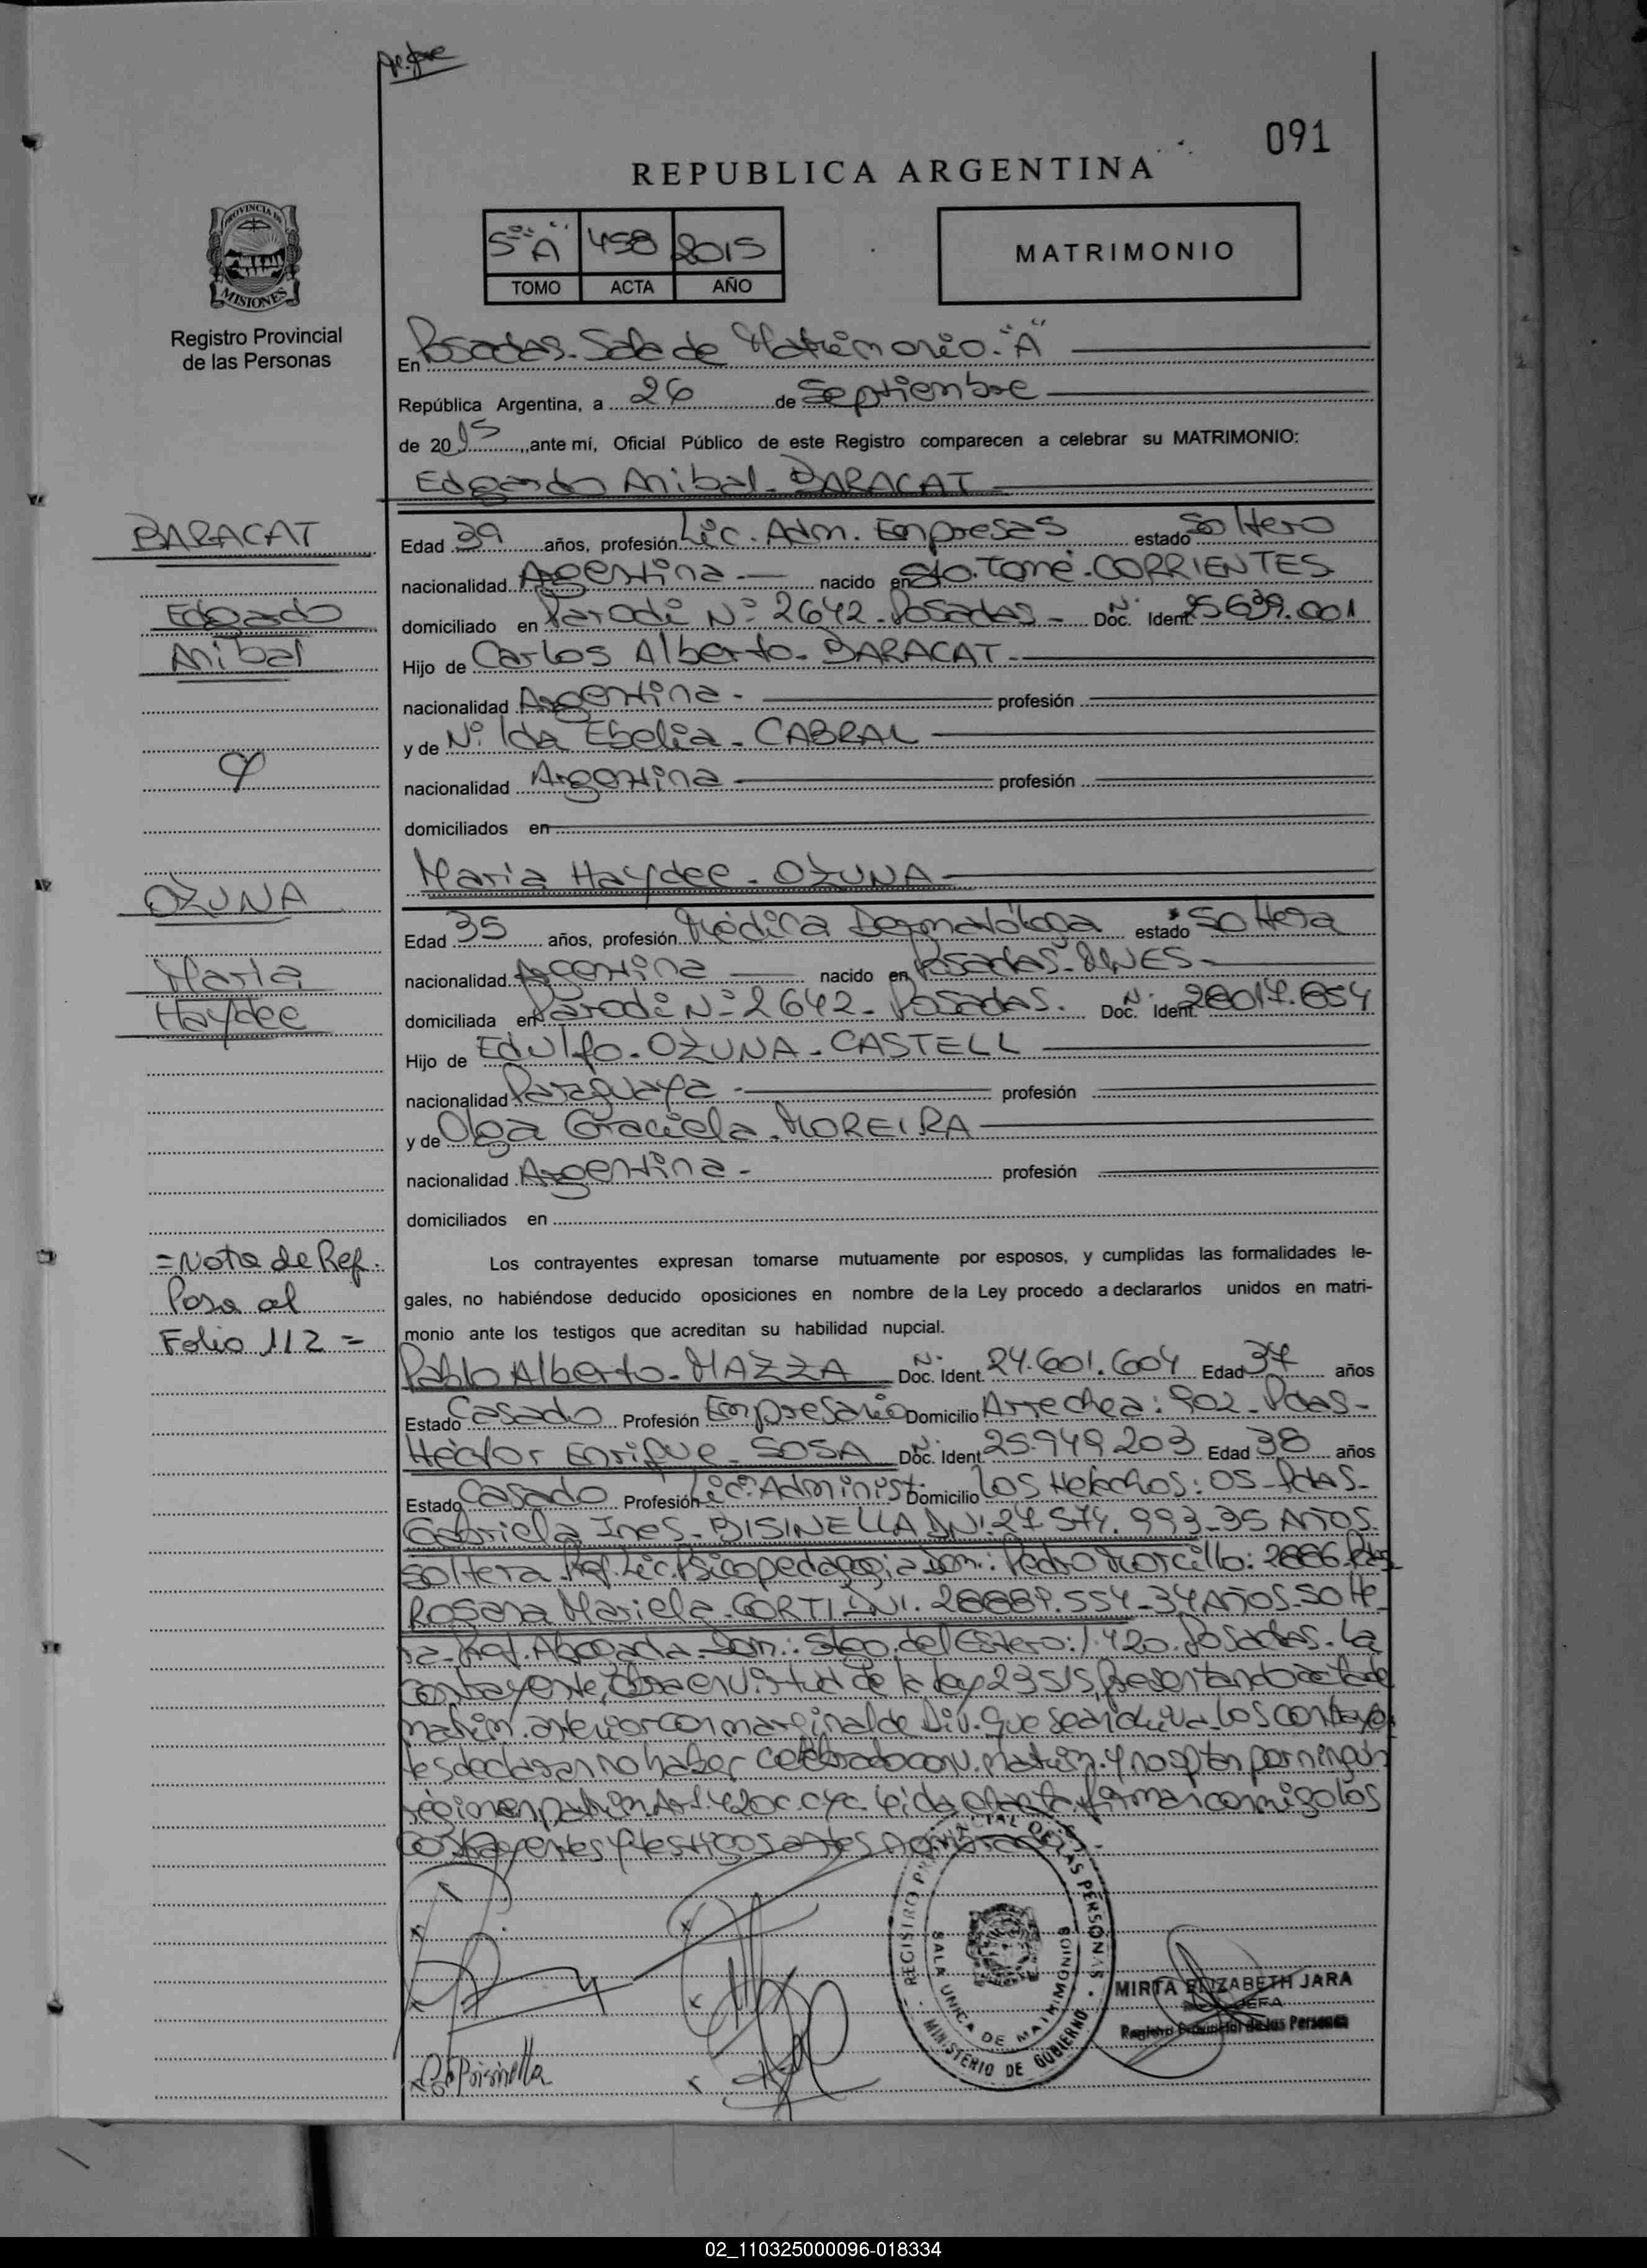 091
REPUBLICA ARGENTINA
5º "A" 458 2015
TOMO ACTA AÑO
MATRIMONIO
PROVINCIA DE
MISIONES
Registro Provincial
de las Personas
En Posadas. Sala de Matrimonio. "A"
República Argentina, a 26 de Septiembre
de 2015, ante mí, Oficial Público de este Registro comparecen a celebrar su MATRIMONIO:
Edgardo Anibal. BARACAT
BARACAT
Edgardo
Anibal
Edad 39 años, profesión Lic. Adm. Empresas estado Soltero
nacionalidad Argentina.- nacido en Sto. Tomé. CORRIENTES
domiciliado en Parodi Nº 2642. Posadas - Doc. Ident. Nº 25639.001
Hijo de Carlos Alberto. BARACAT.
nacionalidad Argentina. profesión
y de Nilda Ebelia. CABRAL
nacionalidad Argentina profesión
domiciliados en
y
Maria Haydee. OZUNA
OZUNA
Maria
Haydee
Edad 35 años, profesión Médica Dermatóloga estado Soltera
nacionalidad Argentina nacido en Posadas
domiciliada en Parodi Nº 2642. Posadas. Doc. Ident. Nº 28017.854
Hijo de Edulfo. OZUNA. CASTELL
nacionalidad Paraguaya profesión
y de Olga Graciela. MOREIRA
nacionalidad Argentina. profesión
domiciliados en
= Nota de Ref.
Pasa al
Folio 112 =
Los contrayentes expresan tomarse mutuamente por esposos, y cumplidas las formalidades le-
gales, no habiéndose deducido oposiciones en nombre de la Ley procedo a declararlos unidos en matri-
monio ante los testigos que acreditan su habilidad nupcial.
Pablo Alberto. MAZZA Doc. Ident. Nº 24.601.604 Edad 37 años
Estado Casado Profesión Empresario Domicilio Arrechea: 902. Pdas-
Héctor Enrique. SOSA Doc. Ident. Nº 25.949.203 Edad 38 años
Estado Casado Profesión Lic. Administ. Domicilio Los Helechos: 05. Pdas.
Gabriela Ines. BISINELLA DNI. 27.574.993-35 Años.
Soltera Prof. Lic. Psicopedagogia Dom.: Pedro Morcillo: 2886. Pdas
Rosana Mariela. CORTI. DNI. 28889.554-34 Años. Solte-
ra. Prof. Abogada. Dom.: Stgo. del Estero: 1.420. Posadas. La
contrayente, obra en virtud de la ley 23515, presentando acta de
matrim. anterior con marginal de Div. que se archiva. Los contrayen
tes declaran no haber celebrado conv. matrim. y no optan por ningún
régimen patrim. Art. 420 C. CyC. Leida el acta, firman conmigo los
contrayentes y testigos antes nombrados.
REGISTRO PROVINCIAL DE LAS PERSONAS
SALA UNICA DE MATRIMONIOS
MINISTERIO DE GOBIERNO
MIRTA ELIZABETH JARA
JEFA
Registro Provincial de las Personas
Bisinella
02_110325000096-018334